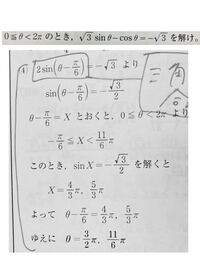 0≦θ<2π のとき，√3 sinθ−cosθ=−√3 を解け。
(4) 2sin(θ−π/6)=−√3 より
sin(θ−π/6)=−√3/2
θ−π/6=X とおくと，0≦θ<2π より
−π/6≦X<11/6π
このとき，sinX=−√3/2 を解くと
X=4/3π，5/3π
よって θ−π/6=4/3π，5/3π
ゆえに θ=3/2π，11/6π
三角